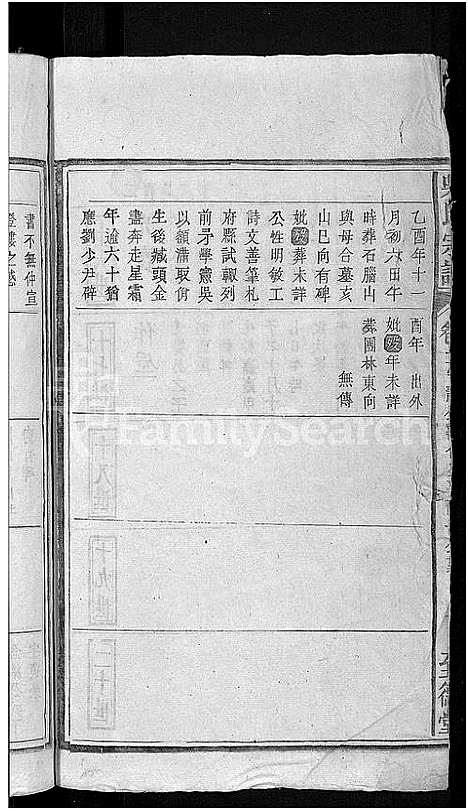 乙酉年十
月初六日午
時葬石腦山
與母合墓亥
山巳向有碑
妣葬未詳
公性明敏工
詩文善筆札
府縣試輒列
前矛學憲吳
以額滿取佾
生後藏頭金
盡奔走星霜
年逾六十猶
應劉少尹辟
酉年 出外
妣年未詳
葬園林東向
無傳
書不無仲宣
登樓之感
十八世
十九世
二十世
吳氏宗譜
至德堂
FamilySearch